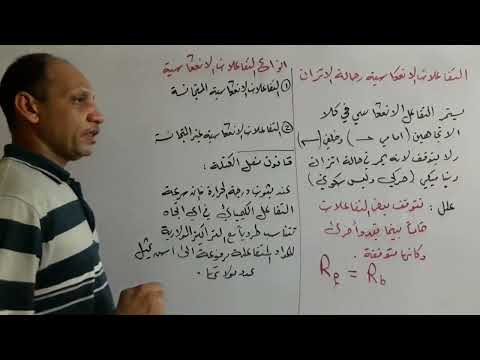 التفاعلات الانعكاسية وحالة الاتزان
يتم التفاعل الانعكاسي في كلا
الاتجاهين (امامي ← وخلفي →)
ولا يتوقف لانه يمر في حالة اتزان
ديناميكي (حركي وليس سكوني)
علل: تتوقف بعض التفاعلات
تماماً بينما يبدو آخرى
وكانها متوقفة.
Rf = Rb
انواع التفاعلات الانعكاسية
① التفاعلات الانعكاسية المتجانسة
② التفاعلات الانعكاسية غير المتجانسة
قانون فعل الكتلة:
عند ثبوت درجة الحرارة فان سرعة
التفاعل الكيميائي في اي اتجاه
تتناسب طردياً مع التراكيز المولارية
للمواد المتفاعلة مرفوعة الى اس يمثل
عدد مولاتها